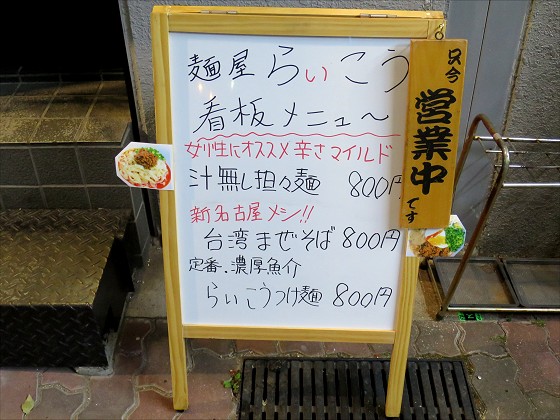 麺屋 らいこう
看板メニュ〜
女性にオススメ 辛さマイルド
汁無し担々麺 800円
新名古屋メシ!!
台湾まぜそば 800円
定番、濃厚魚介
らいこうつけ麺 800円
只今
営業中
です